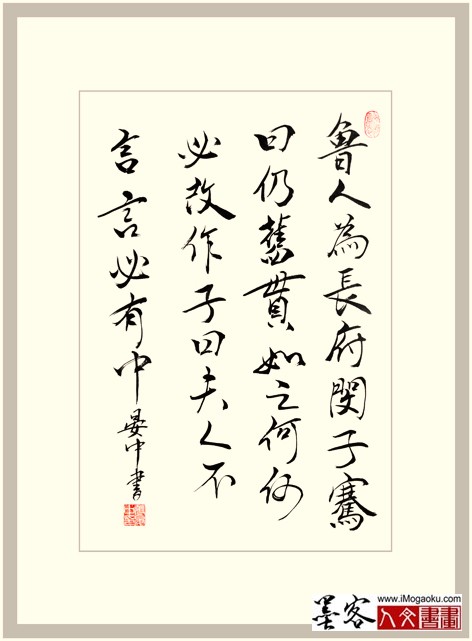 魯人為長府閔子騫
曰仍舊貫如之何何
必改作子曰夫人不
言言必有中
晏中書
墨客
www.iMogaoku.com
人文書畫